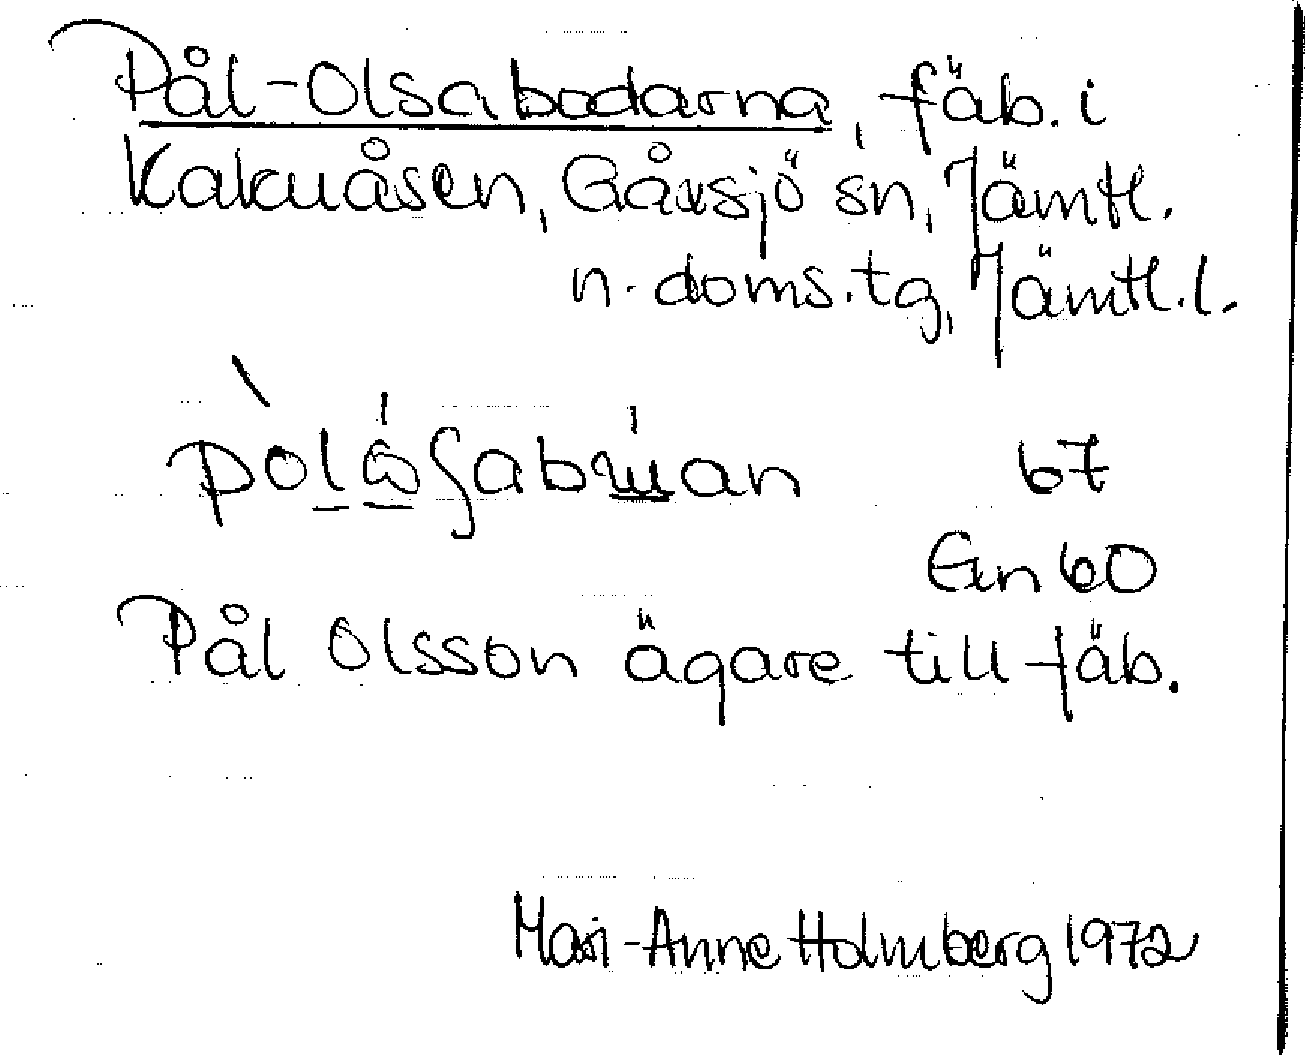 Pål-Olsabodarna, fäb. i
Kakuåsen, Gåxsjö sn, Jämtl.
n. doms.tg, Jämtl.l.
67
Gn 60
Pål Olsson ägare till fäb.
Mari-Anne Holmberg 1972